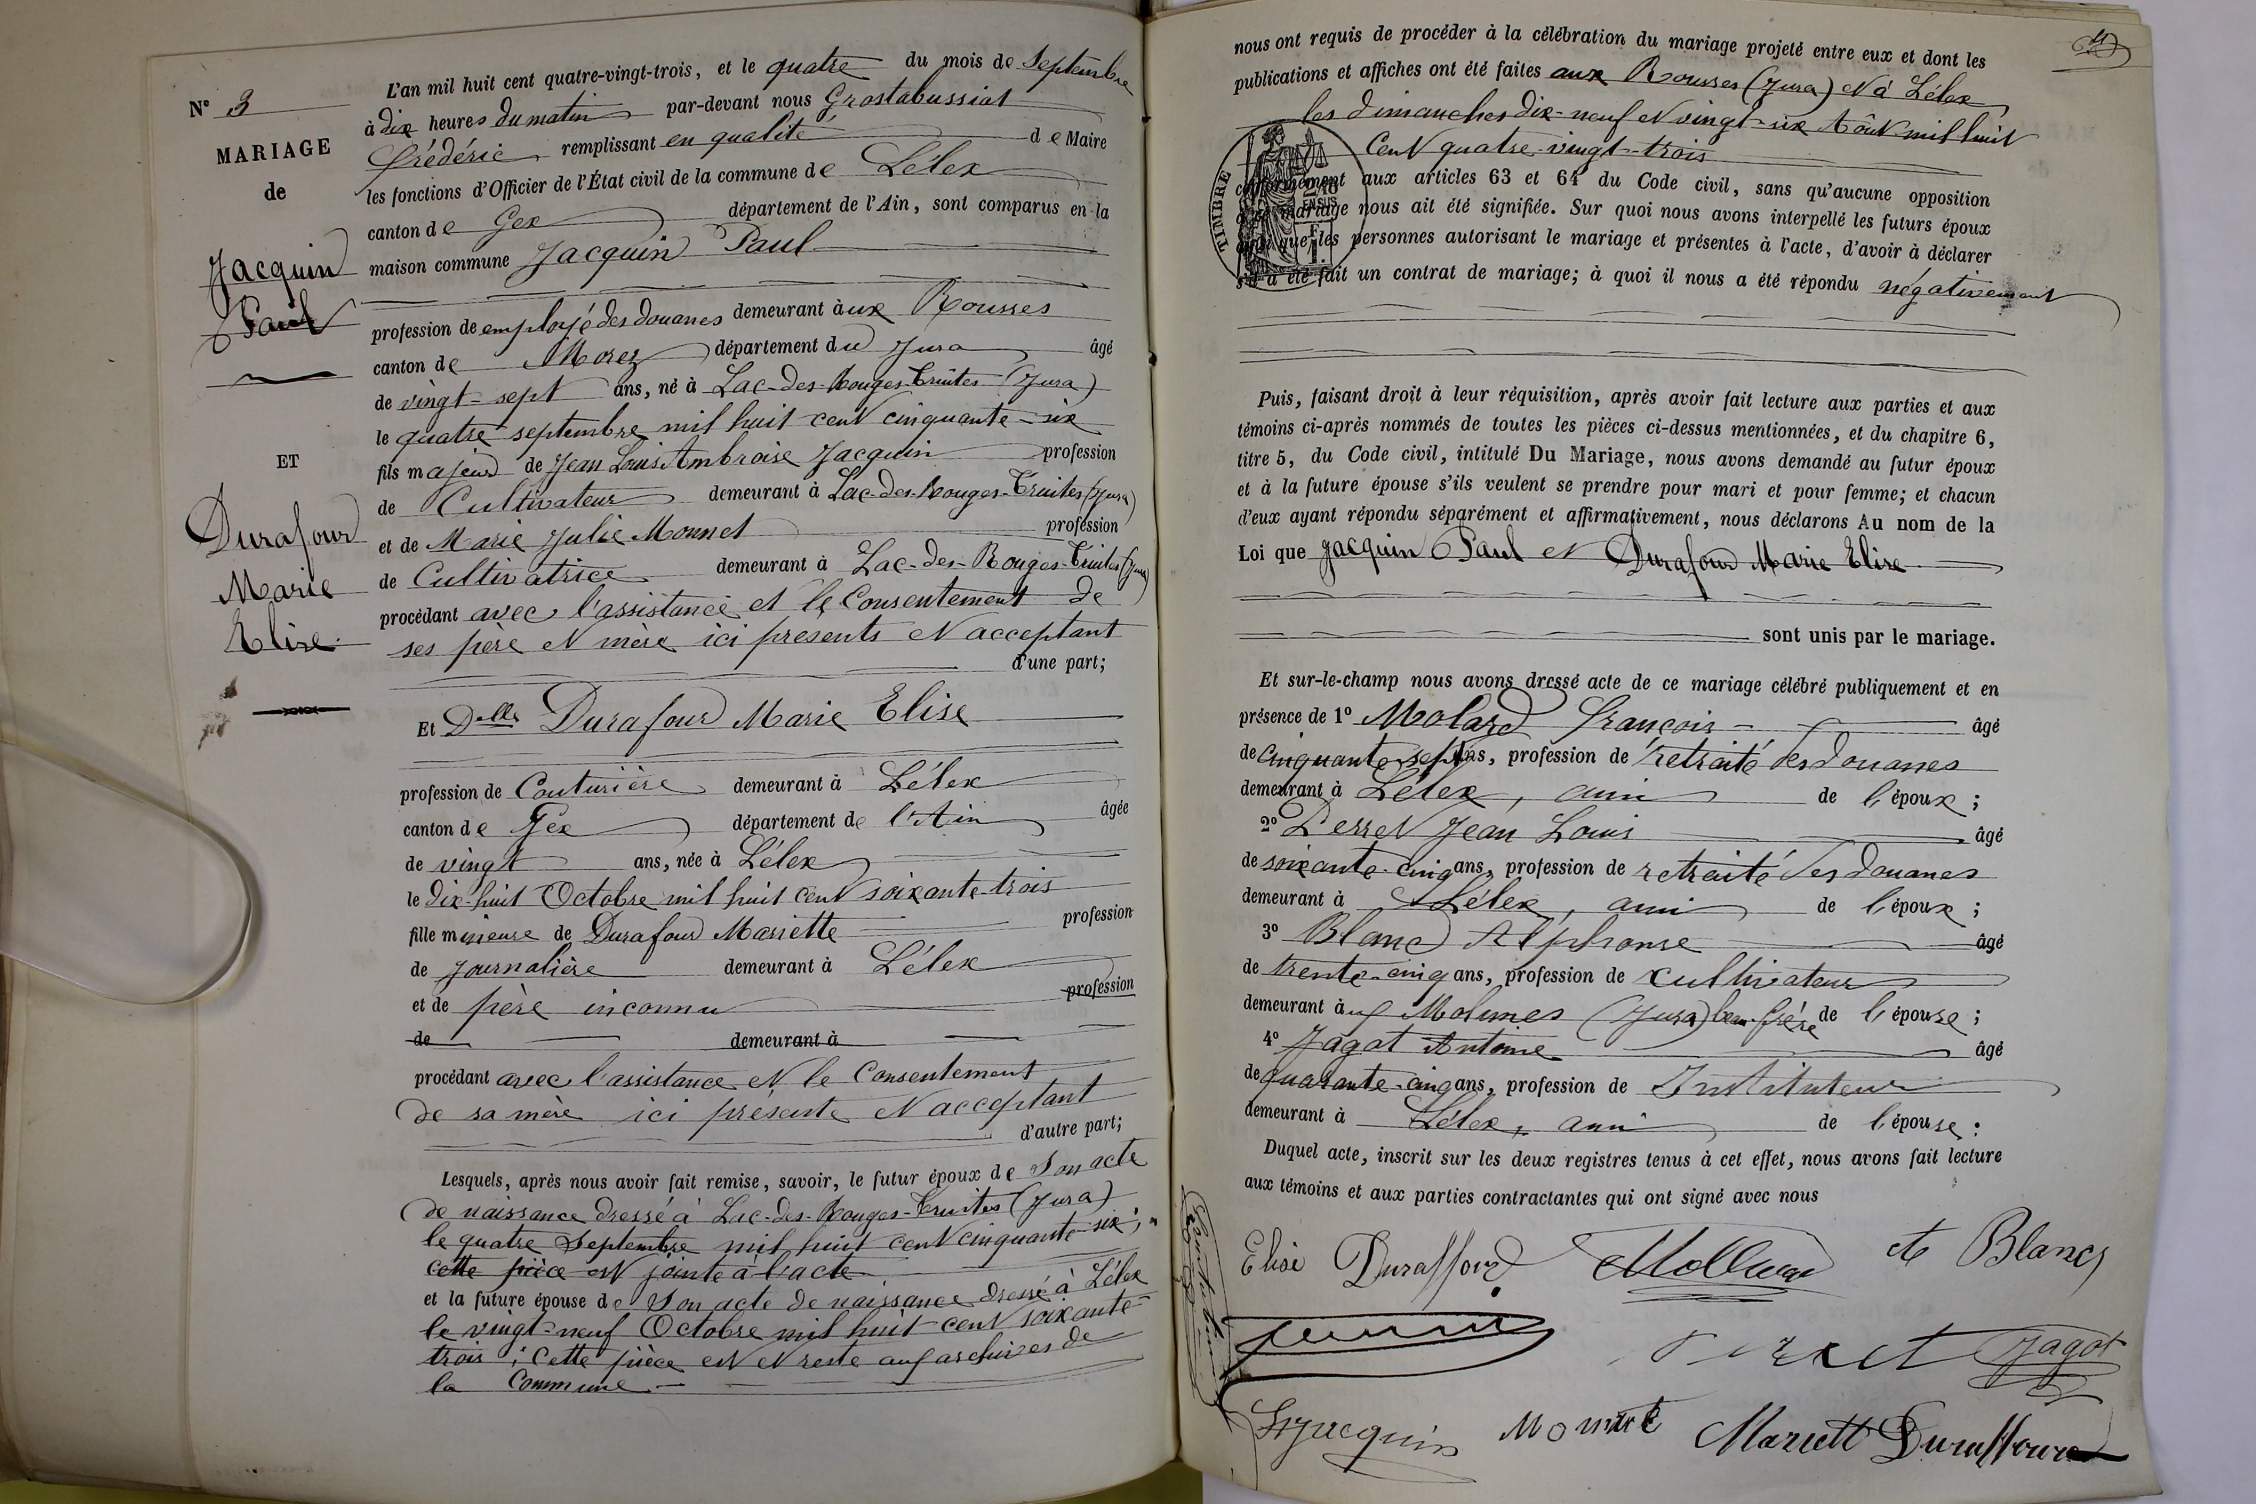 N° 3
MARIAGE
de
Jacquin
Paul
ET
Durafour
Marie
Elise
L'an mil huit cent quatre-vingt-trois, et le quatre du mois de Septembre
à dix heures du matin par-devant nous Grostabussiat
frédéric remplissant en qualité de Maire
les fonctions d'Officier de l'État civil de la commune de Lélex
canton de Gex département de l'Ain, sont comparus en la
maison commune Jacquin Paul
profession de employé des douanes demeurant aux Rousses
canton de Morez département du Jura âgé
de vingt-sept ans, né à Lac-des-Rouges-Truites (Jura)
le quatre septembre mil huit cent cinquante-six
fils majeur de Jean Louis Ambroise Jacquin profession
de Cultivateur demeurant à Lac-des-Rouges-Truites (Jura)
et de Marie Julie Monnet profession
de Cultivatrice demeurant à Lac-des-Rouges-Truites (Jura)
procédant avec l'assistance et le Consentement de
ses père et mère ici présents et acceptant
d'une part;
Et Delle Durafour Marie Elise
profession de Couturière demeurant à Lélex
canton de Gex département de l'Ain âgée
de vingt ans, née à Lélex
le dix-huit Octobre mil huit cent soixante-trois
fille mineure de Durafour Mariette profession
de Journalière demeurant à Lélex
et de père inconnu profession
de demeurant à
procédant avec l'assistance et le Consentement
de sa mère ici présente et acceptant
d'autre part;
Lesquels, après nous avoir fait remise, savoir, le futur époux de Son acte
de naissance dressé à Lac-des-Rouges-Truites (Jura)
le quatre Septembre mil huit cent cinquante-six;
cette pièce est jointe à l'acte
et la future épouse de Son acte de naissance dressé à Lélex
le vingt-neuf Octobre mil huit cent soixante-
trois; cette pièce est et reste aux archives de
la Commune
nous ont requis de procéder à la célébration du mariage projeté entre eux et dont les
publications et affiches ont été faites aux Rousses (Jura) et à Lélex
les dimanches dix-neuf et vingt-six Août mil huit
cent quatre-vingt-trois
conformément aux articles 63 et 64 du Code civil, sans qu'aucune opposition
mariage nous ait été signifiée. Sur quoi nous avons interpellé les futurs époux
que les personnes autorisant le mariage et présentes à l'acte, d'avoir à déclarer
s'il a été fait un contrat de mariage; à quoi il nous a été répondu négativement
TIMBRE
Puis, faisant droit à leur réquisition, après avoir fait lecture aux parties et aux
témoins ci-après nommés de toutes les pièces ci-dessus mentionnées, et du chapitre 6,
titre 5, du Code civil, intitulé Du Mariage, nous avons demandé au futur époux
et à la future épouse s'ils veulent se prendre pour mari et pour femme; et chacun
d'eux ayant répondu séparément et affirmativement, nous déclarons Au nom de la
Loi que Jacquin Paul et Durafour Marie Elise
sont unis par le mariage.
Et sur-le-champ nous avons dressé acte de ce mariage célébré publiquement et en
présence de 1° Molard françois âgé
de cinquante-sept ans, profession de retraité des douanes
demeurant à Lélex, ami de l'époux;
2° Perret Jean Louis âgé
de soixante-cinq ans, profession de retraité des douanes
demeurant à Lélex, ami de l'époux;
3° Blanc Alphonse âgé
de trente-cinq ans, profession de cultivateur
demeurant aux Molunes (Jura) beau-frère de l'épouse;
4° Jagot Antoine âgé
de quarante-cinq ans, profession de Instituteur
demeurant à Lélex, ami de l'épouse:
Duquel acte, inscrit sur les deux registres tenus à cet effet, nous avons fait lecture
aux témoins et aux parties contractantes qui ont signé avec nous
Elise Duraffourd Mollard A Blanc
Perret Jagot
Jacquin Monnet Mariett Duraffourd